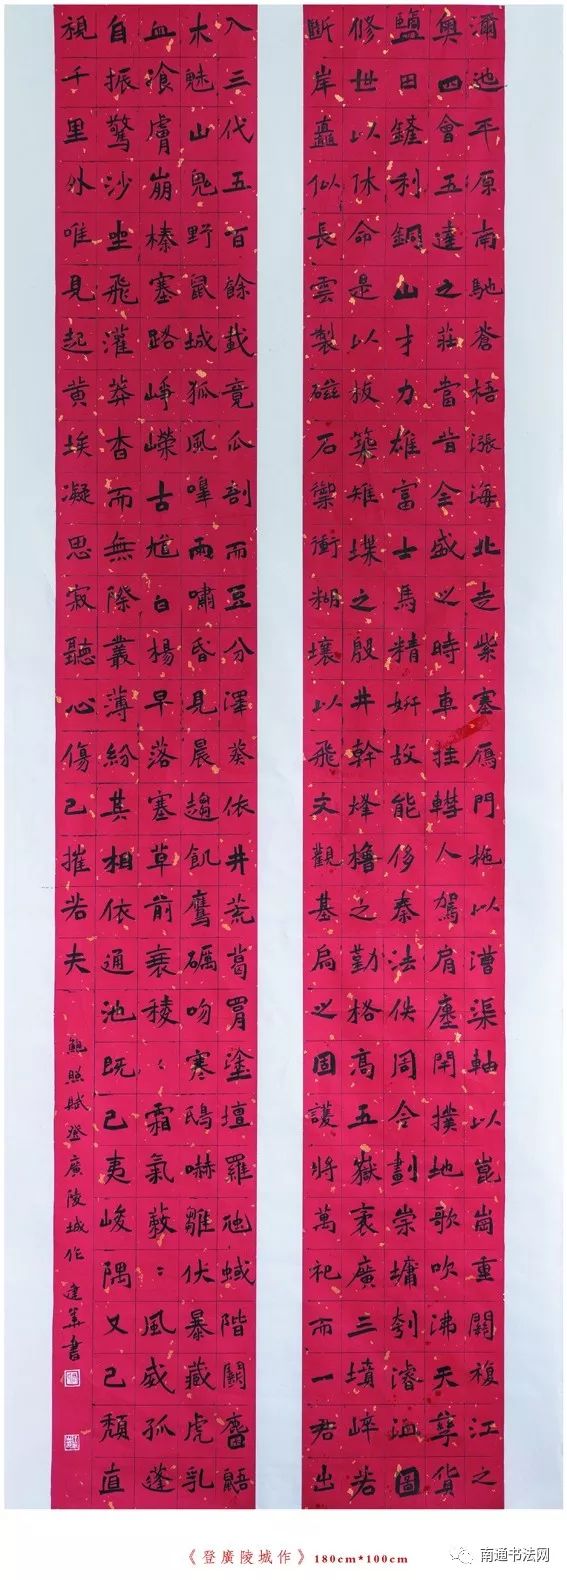 瀰池平原南馳蒼梧漲海北走紫塞鴈門柂以漕渠軸以崑崗重關複江之
奧四會五達之莊當昔全盛之時車挂轊人駕肩廛閈撲地歌吹沸天孳貨
鹽田鏟利銅山才力雄富士馬精妍故能侈秦法佚周令劃崇墉刳濬洫圖
修世以休命是以板築雉堞之殷井幹烽櫓之勤格高五嶽袤廣三墳崪若
斷岸矗似長雲製磁石禦衝糊壤以飛文觀基扃之固護將萬祀而一君出
入三代五百餘載竟瓜剖而豆分澤葵依井荒葛罥塗壇羅虺蜮階鬬麏鼯
木魅山鬼野鼠城狐風嘷雨嘯昏見晨趨飢鷹礪吻寒鴟嚇雛伏暴藏虎乳
血飡膚崩榛塞路崢嶸古馗白楊早落塞草前衰稜:霜氣蔌:風威孤蓬
自振驚沙坐飛灌莽杳而無際叢薄紛其相依通池既已夷峻隅又已頹直
視千里外唯見起黃埃凝思寂聽心傷已摧若夫
鮑照賦登廣陵城作 建華書
《登廣陵城作》180cm*100cm
南通书法网